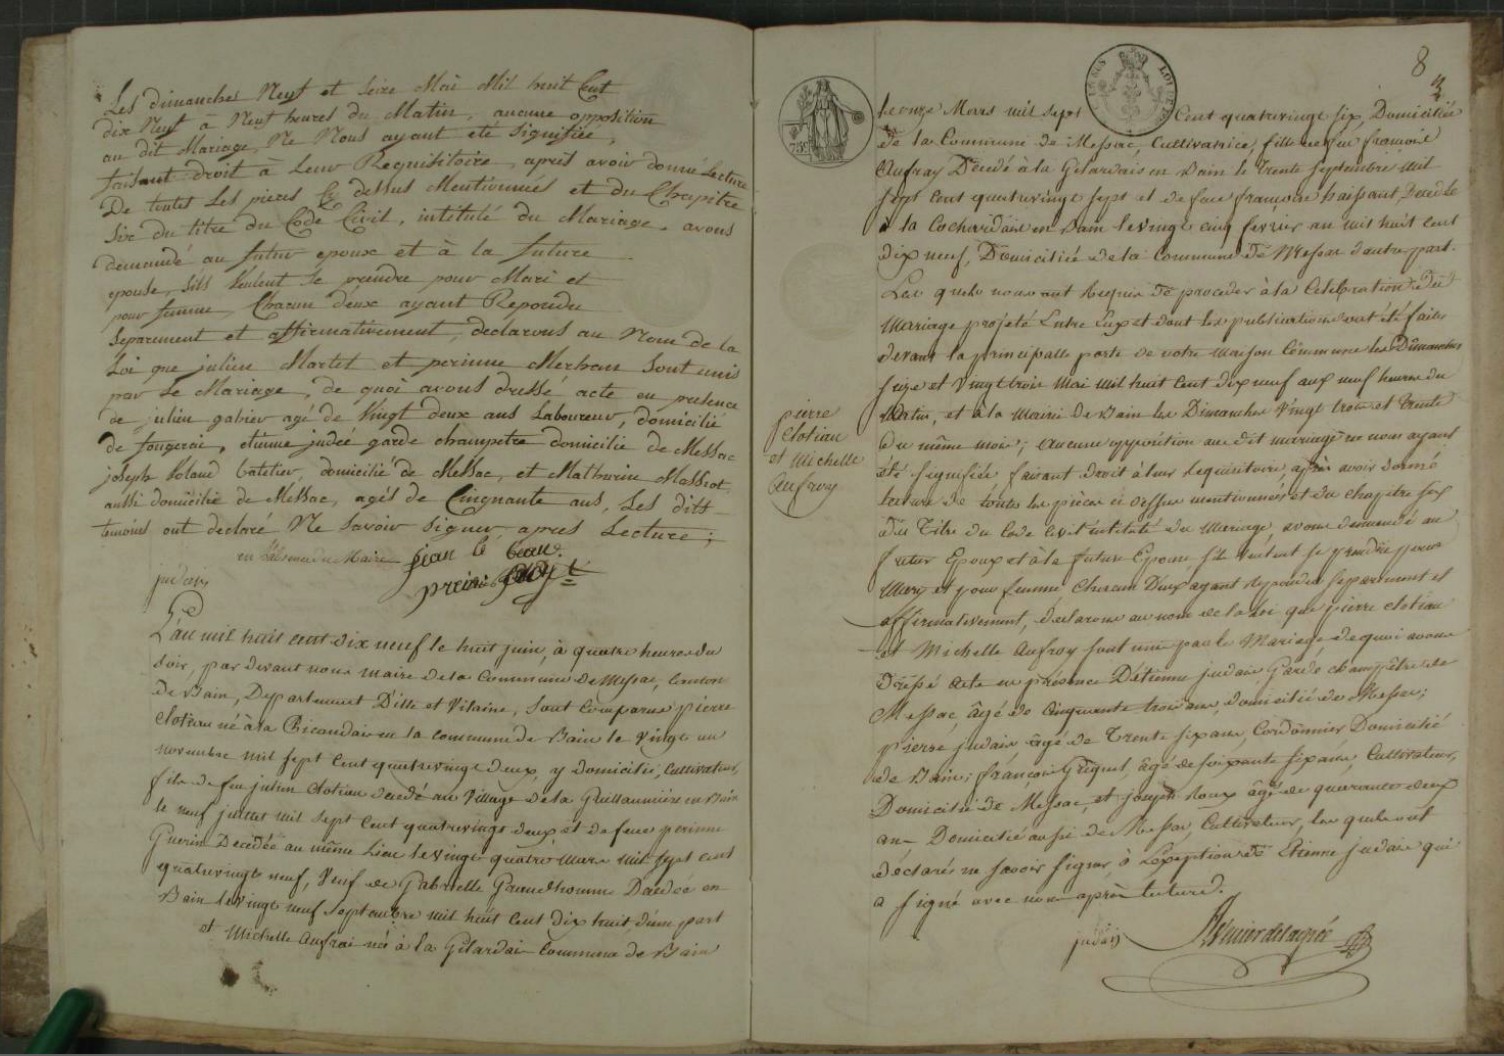 Les dimanches Neuf et Seize Mai Mil huit Cent
dix Neuf à Neuf heures du Matin, aucune opposition
au dit Mariage Ne Nous ayant eté Signifiée,
faisant droit à Leur Requisitoire, après avoir donné Lecture
De toutes Les pieces Cy dessus Mentionnées et du Chapitre
Six du titre du Code Civil, intitulé du Mariage, avons
demandé au futur epoux et à la future
epouse, Sils Veulent Se prendre pour Mari et
pour femme, Chacun d'eux ayant Repondu
Separement et affirmativement, declarons au Nom de la
Loi que julien Martel et perinne Merhan Sont unis
par Le Mariage, de quoi avons dressé acte en presence
de julien gabier agé de Vingt deux ans Laboureur, domicilié
de fougerai, etienne judée garde champetre domicilie de Messac
joseph Rolaud batelier, domicilié de Messac, et Mathurin Massiot
aussi domicilié de Messac, agés de Cinquante ans, Les dits
temoins ont declaré Ne Savoir Signer, apres Lecture;
en l'absence du Maire jean le beau.
judais
L'an mil huit cent dix neuf le huit juin, à quatre heures du
Soir, par devant nous maire de la Commune de Messac, Canton
de Bain, Departement D'ille et Vilaine, Sont Comparus pierre
Clotiau né à la Ricordais en la commune de Bain le Vingt un
novembre mil Sept Cent quatrevingt deux, y domicilié, Cultivateur,
fils de feu julien Clotiau decedé au Village de la Guillaumière en Bain
le neuf juillet mil Sept Cent quatrevingt deux et de feue perinne
Guerin Decédée au même Lieu le vingt quatre Mars mil Sept cent
quatrevingt neuf, Veuf de Gabrielle Prudhomme Decedée en
Bain le vingt neuf Septembre mil huit Cent dix huit, d'une part
et Michelle Aufrai née à la Gilardai Commune de Bain
8
LOUIS
75c
le onze Mars mil Sept Cent quatrevingt Six, Domiciliée
de la Commune de Messac, Cultivatrice, fille de feu françois
Aufray Décedé à la Gilardais en Bain le trente Septembre mil
Sept Cent quatrevingt Sept et de feue françoise haissant Decedée
à la Cochardais en Bain le vingt cinq fevrier an mil huit cent
dix neuf, Domiciliée de la Commune de Messac d'autre part.
Les quels nous ont Requis de proceder à la Celebration du
Mariage projeté Entre Eux et dont les publications ont été faites
devant la principalle porte de votre maison Commune les Dimanches
Seize et Vingt trois Mai mil huit Cent dix neuf aux neuf heures du
Matin, et à la Mairie de Bain les Dimanches Vingt trois et trente
du même mois; aucune opposition au dit mariage ne nous ayant
été Signifiée faisant droit à leur Requisitoire, après avoir donné
lecture de toutes les pièces ci dessus mentionnées et du chapitre Six
du Titre du Code Civil intitulé du Mariage, avons demandé au
futur Epoux et à la future Epouse S'ils Veulent Se prendre pour
Mary et pour femme, Chacun D'eux ayant Repondu Separement et
affirmativement, Declarons au nom de la Loi que pierre Clotiau
et Michelle Aufroy Sont unis par le Mariage de quoi avons
Dressé acte en présence D'étienne judais Garde champêtre de
Messac, âgé de Cinquante trois ans, domicilié de Messac;
pierre judais âgé de trente Six ans, Cordonnier Domicilié
de Bain; françois Griguel, âgé de Soixante Six ans, Cultivateur,
Domicilié de Messac, et joseph Roux âgé de quarante deux
ans Domicilié aussi de Messac Cultivateur, les quels ont
déclaré ne Savoir Signer, à L'exeption de Etienne judais qui
a Signé avec nous après lecture.
judais
pierre
Clotiau
et Michelle
Aufroy